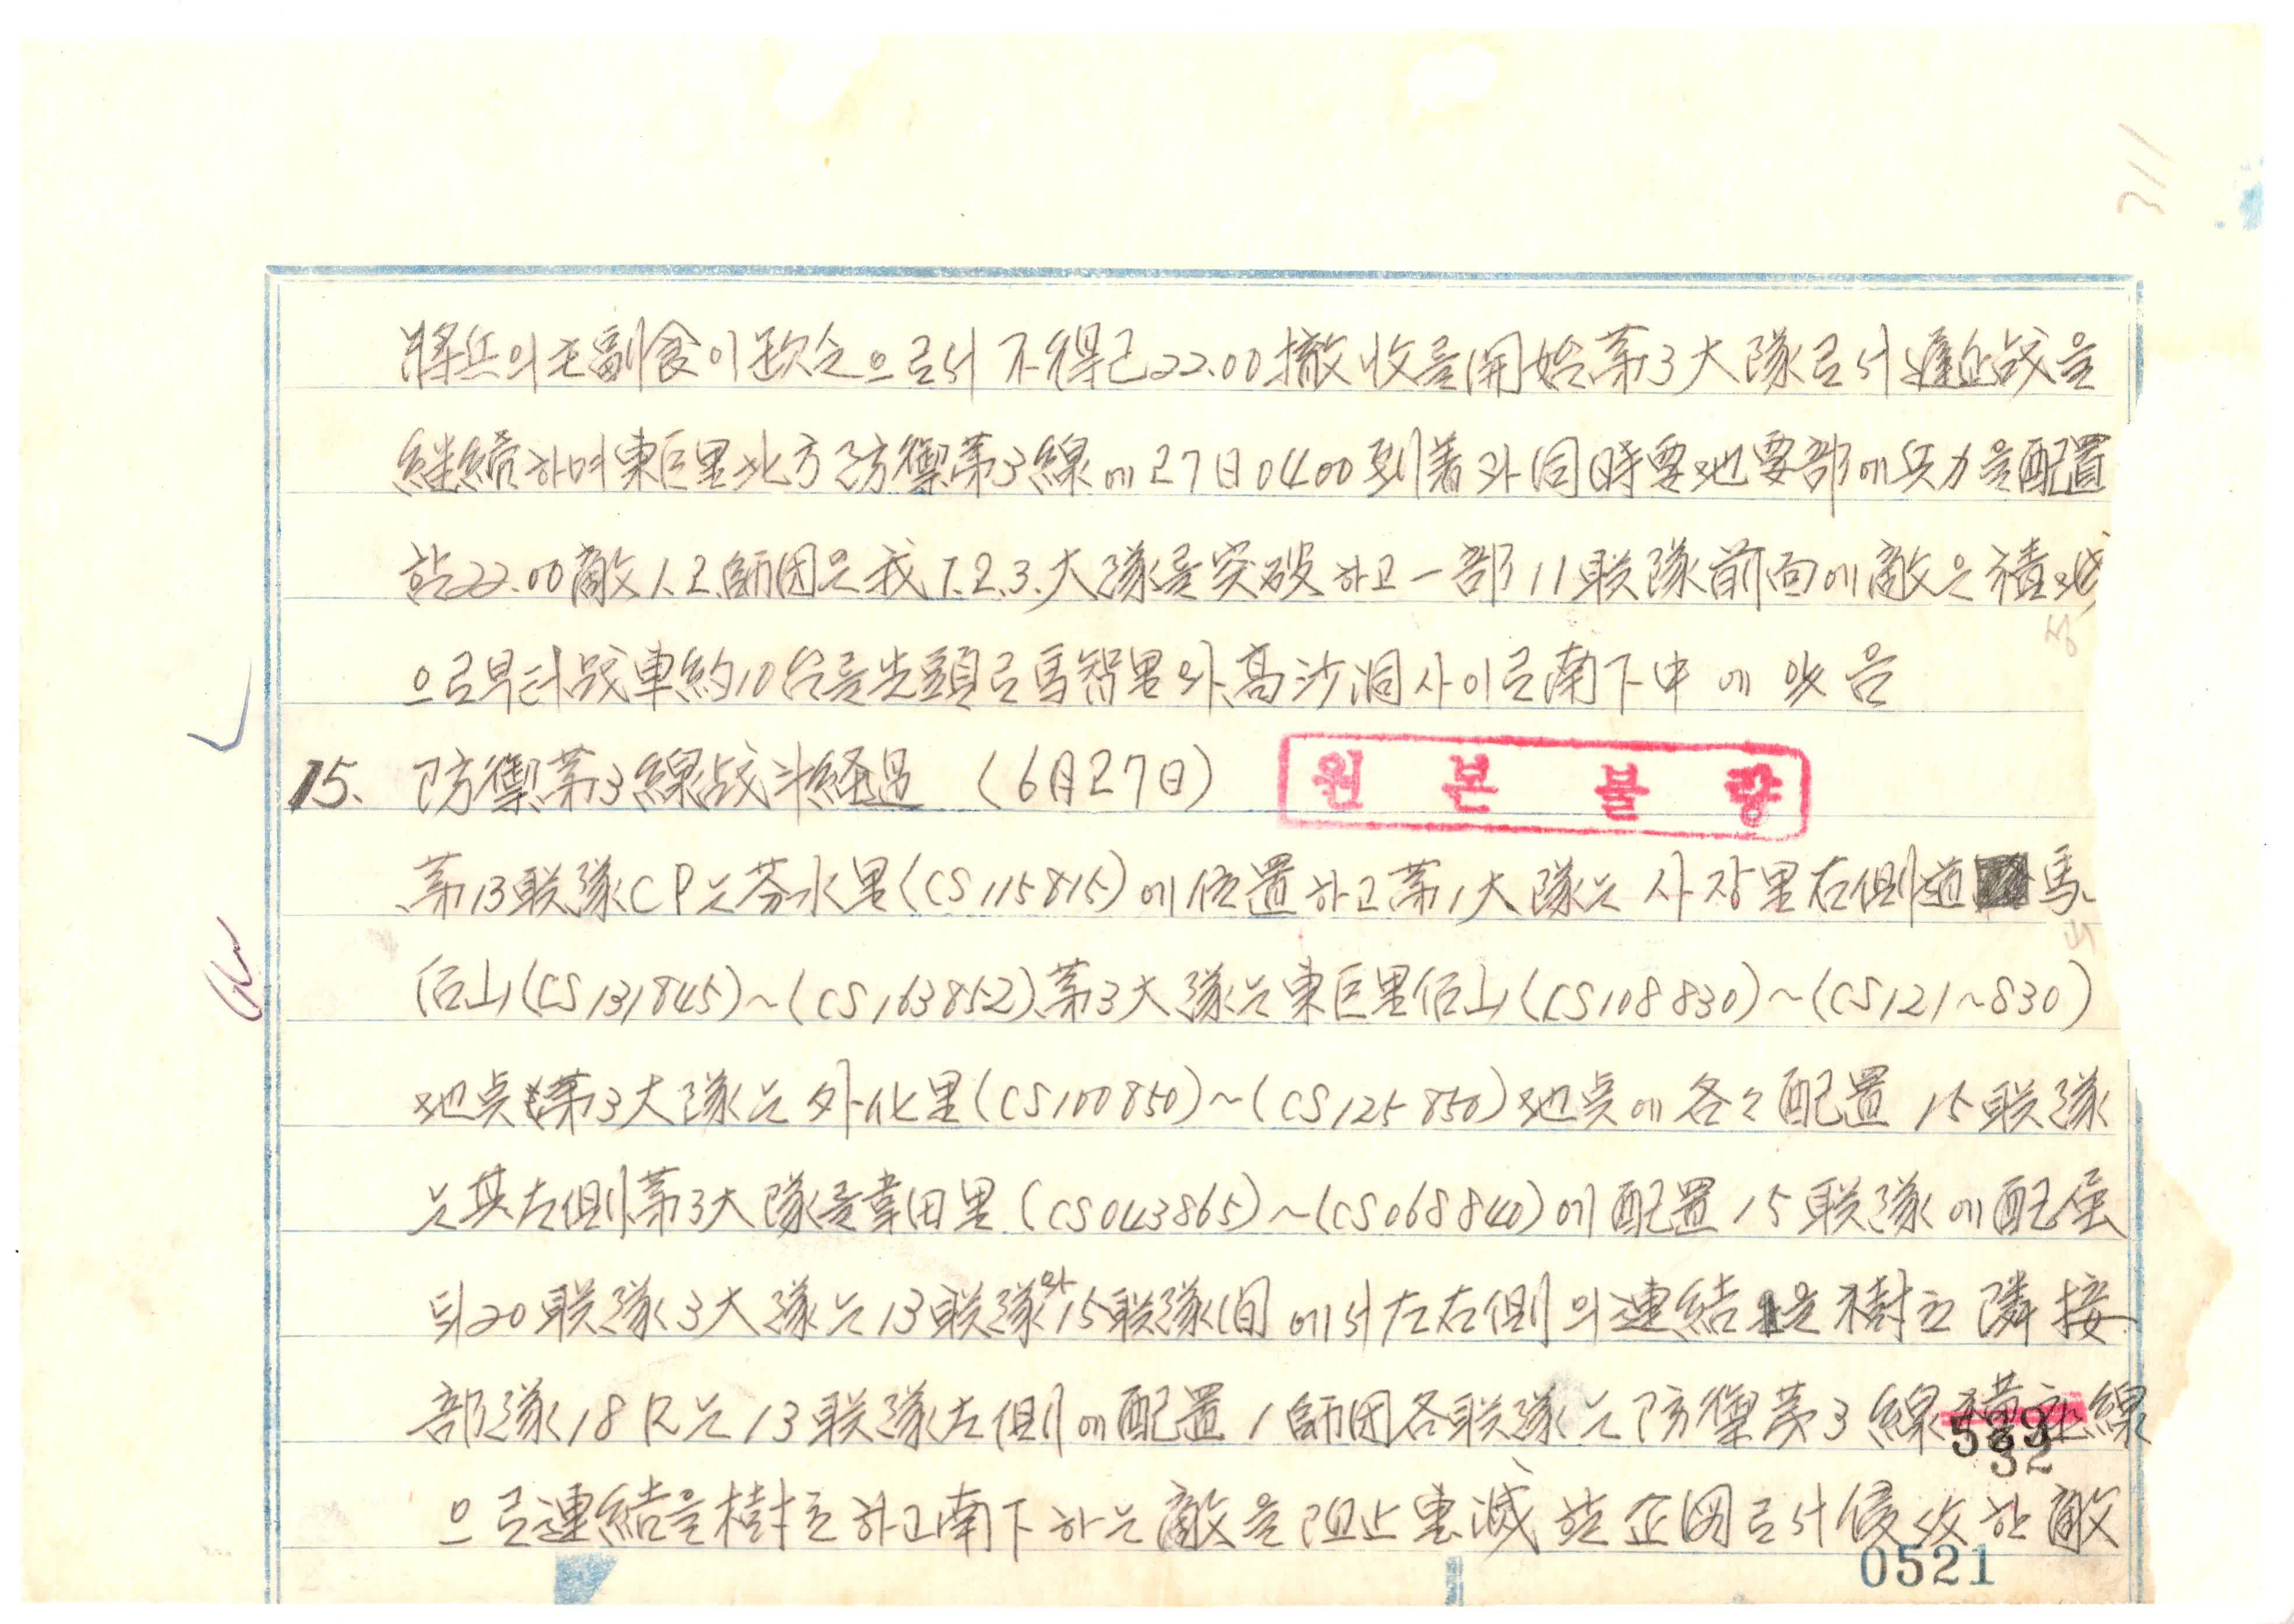 311
將兵의主副食이欠乏으로서 不得已22.00撤收를開始 第3大隊로서遲延战을
継続하며東巨里北方防禦第3線에27日0400到着과同時要地要部에兵力을配置
함22.00敵1.2.師団은我1.2.3.大隊를突破하고一部11联隊前面에敵은積城
성
으로부터战車約10台를先頭로馬智里와高沙洞사이로南下中에있음
15. 防禦第3線战斗経過 (6月27日)
원본불량
第13联隊CP는芬水里(CS115815)에位置하고第1大隊는사장里右側道 馬
山
后山(CS131845)~(CS163852)第3大隊는東巨里后山(CS108830)~(CS121~830)
地点 第3大隊는外化里(CS100850)~(CS125850)地点에各々配置 15联隊
는其左側第3大隊를韋田里(CS043865)~(CS068840)에配置15联隊에配屬
되20联隊3大隊는13联隊와15联隊间에서左右側의連結을樹立 隣接
部隊18R는13联隊左側에配置1師団各联隊는防禦第3線 線
532
으로連結을樹立하고南下하는敵을阻止 滅할企図로서侵攻한敵
0521